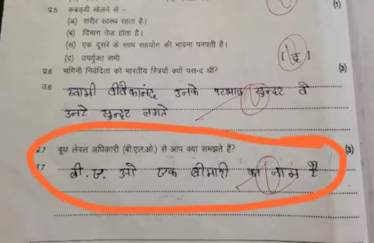 प्र.5 कबड्डी खेलने से – (1)
(अ) शरीर स्वस्थ रहता है।
(ब) दिमाग तेज होता है।
(स) एक दूसरे के साथ सहयोग की भावना पनपती है।
(द) उपर्युक्त सभी
(द)
प्र.6 भगिनी निवेदिता को भारतीय स्त्रियाँ क्यों पसन्द थीं? (2)
उ.6 स्वामी विवेकानंद उनके सुन्दर
उनसे सुन्दर लगते
प्र.7 बूथ लेवल अधिकारी (बी.एल.ओ.) से आप क्या समझते हैं? (3)
बी.एल.ओ एक बीमारी का नाम है